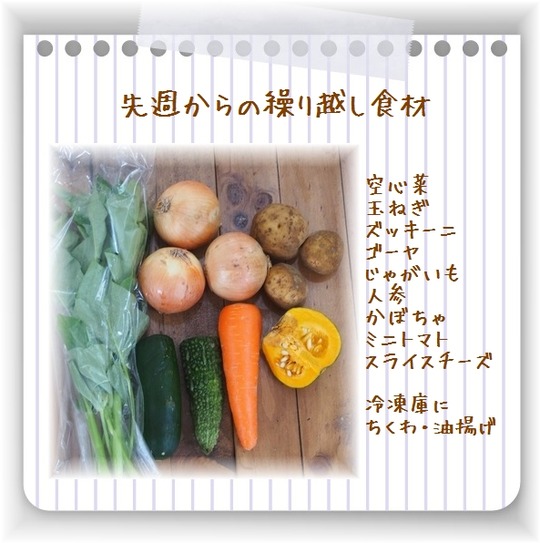 先週からの繰り越し食材
空心菜
玉ねぎ
ズッキーニ
ゴーヤ
じゃがいも
人参
かぼちゃ
ミニトマト
スライスチーズ
冷凍庫に
ちくわ・油揚げ